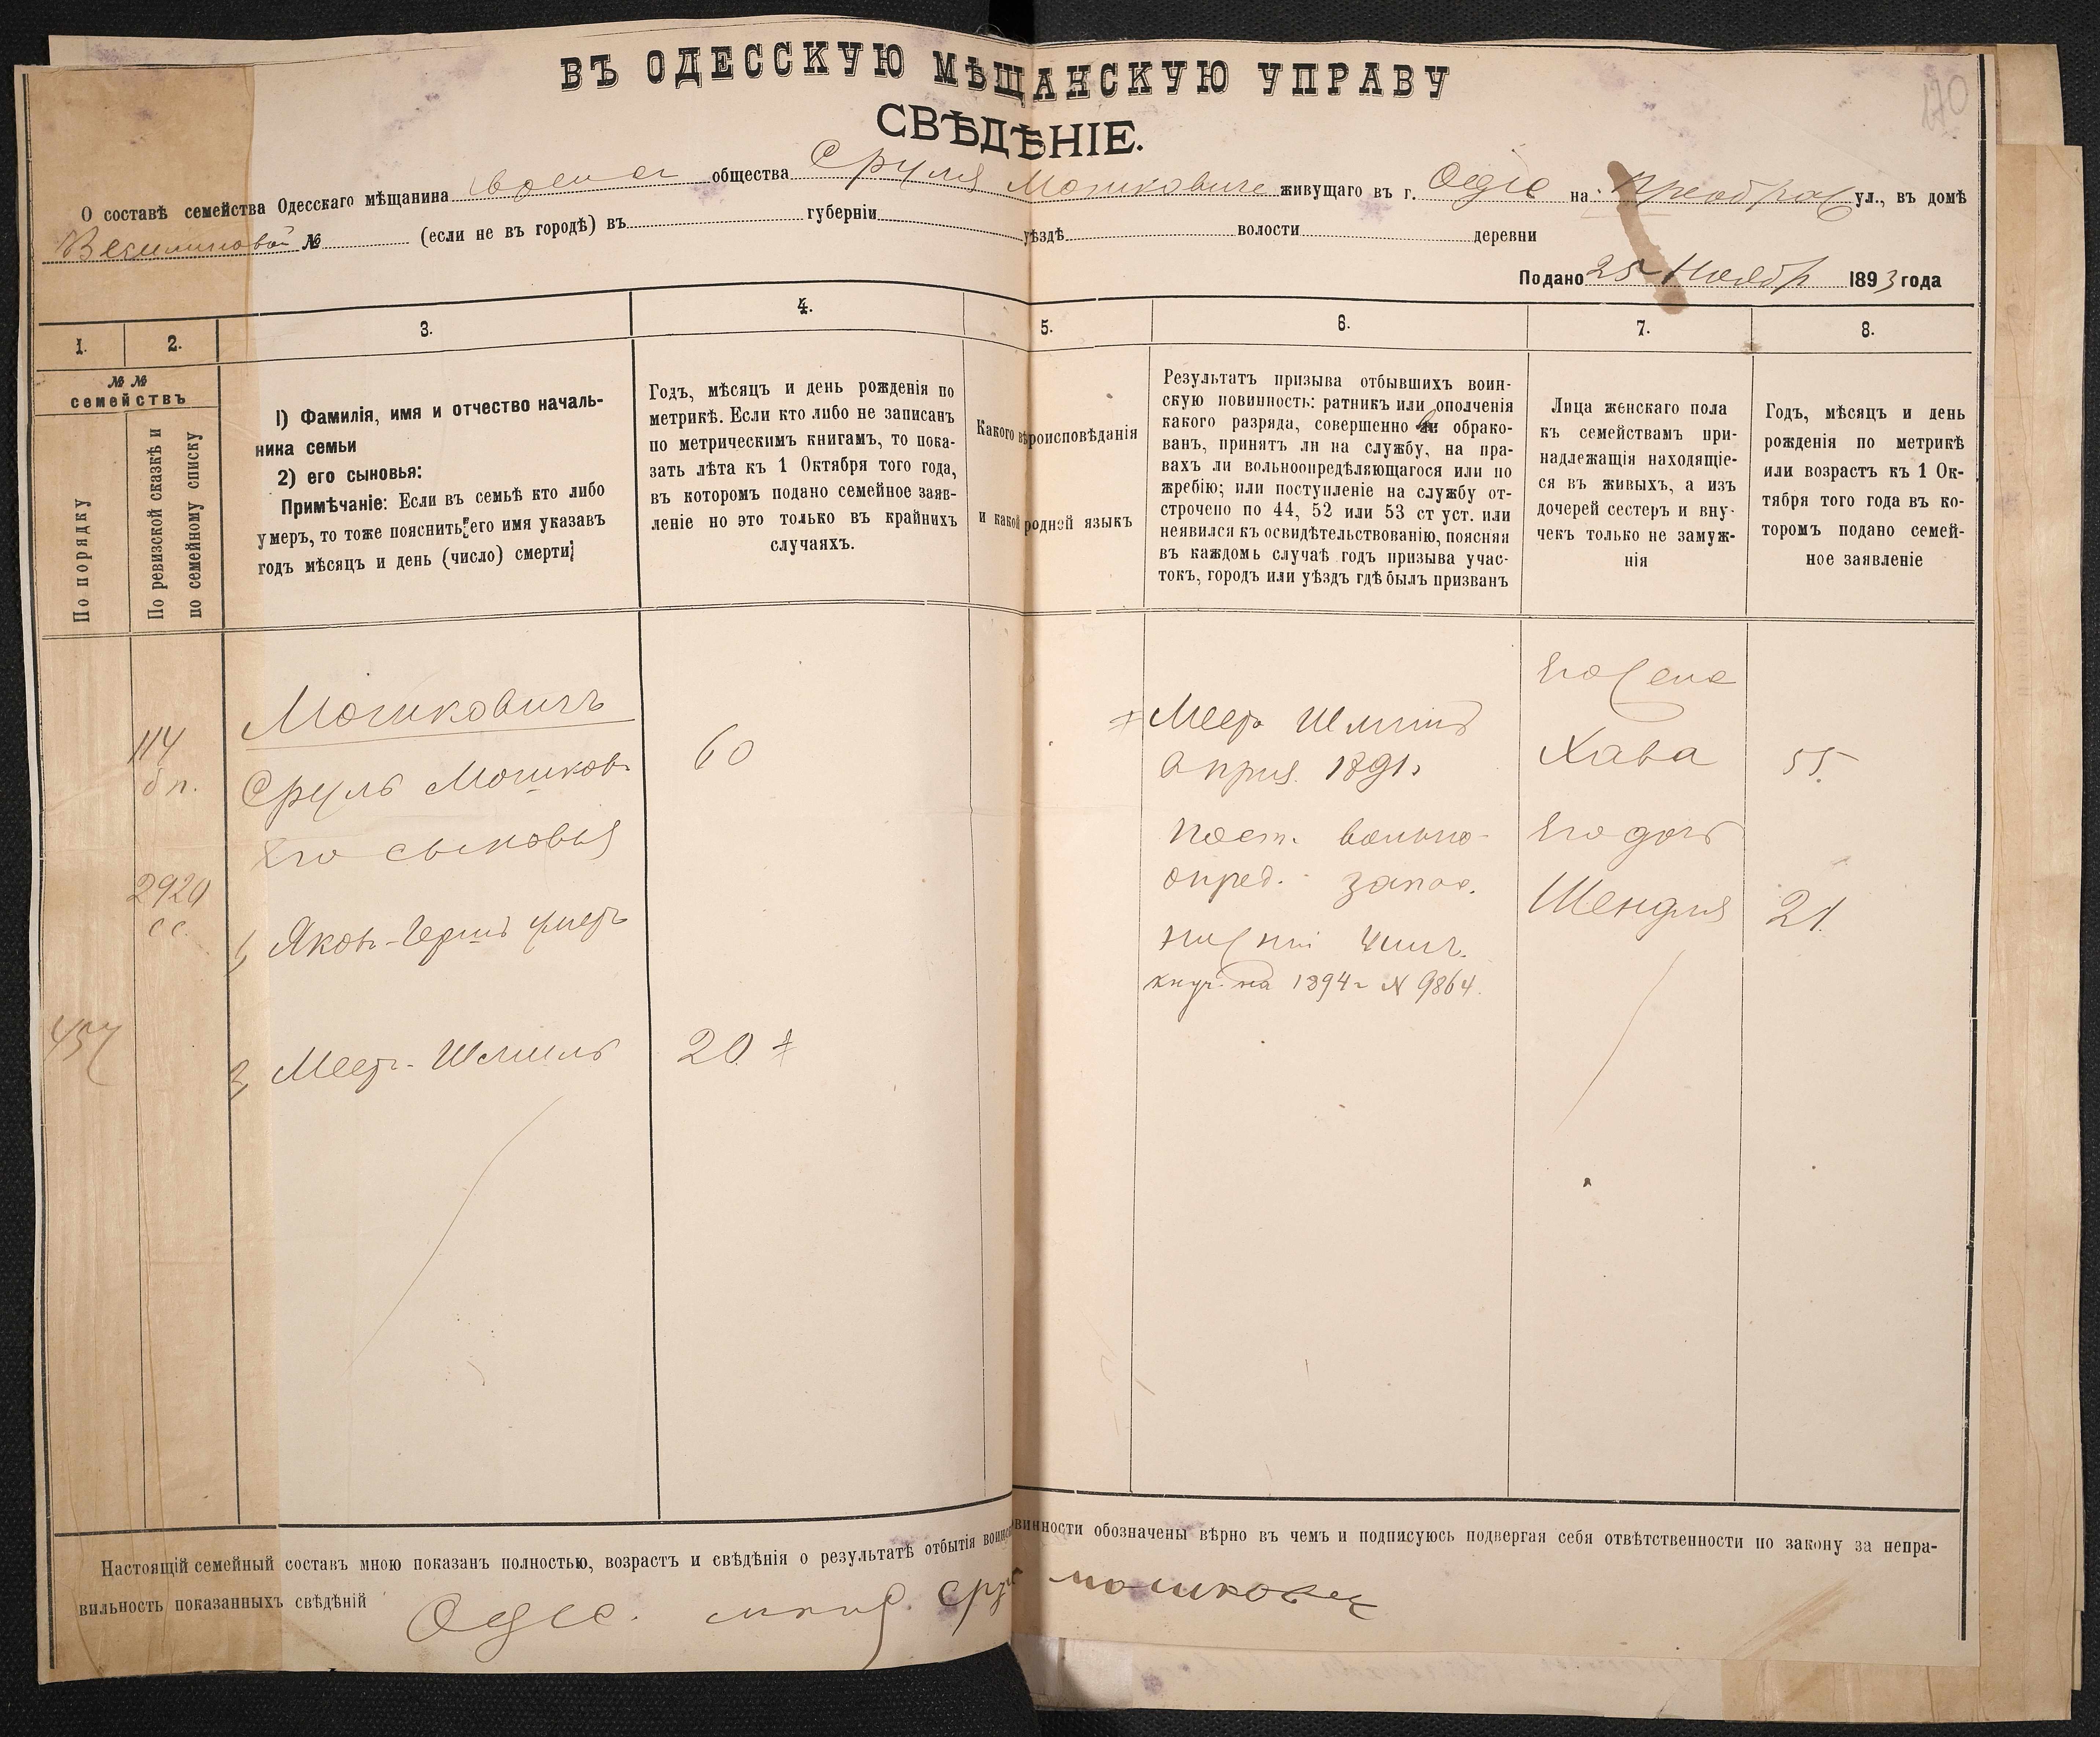 170
ВЪ ОДЕССКУЮ МѢЩАНСКУЮ УПРАВУ
СВѢДѢНІЕ.
О составѣ семейства Одесскаго мѣщанина общества Сруля Мошковича живущаго въ г. Одессе на Преображ ул., въ домѣ
№ (если не въ городѣ) въ губерніи уѣздѣ волости деревни
Подано 25 Ноября 1893 года
1. 2. 3. 4. 5. 6. 7. 8.
№ № семействъ
По порядку
По ревизской сказкѣ и
по семейному списку
1) Фамилія, имя и отчество началь-
ника семьи
2) его сыновья:
Примѣчаніе: Если въ семьѣ кто либо
умеръ, то тоже пояснить, его имя указавъ
годъ мѣсяцъ и день (число) смерти;
Годъ, мѣсяцъ и день рожденія по
метрикѣ. Если кто либо не записанъ
по метрическимъ книгамъ, то пока-
зать лѣта къ 1 Октября того года,
въ которомъ подано семейное заяв-
леніе но это только въ крайнихъ
случаяхъ.
Какого вѣроисповѣданія
и какой родной языкъ
Результатъ призыва отбывшихъ воин-
скую повинность: ратникъ или ополченія
какого разряда, совершенно ли обрако-
ванъ, принятъ ли на службу, на пра-
вахъ ли вольноопредѣляющагося или по
жребію; или поступленіе на службу от-
строчено по 44, 52 или 53 ст уст. или
неявился къ освидѣтельствованію, поясняя
въ каждомъ случаѣ годъ призыва учас-
токъ, городъ или уѣздъ гдѣ былъ призванъ
Лица женскаго пола
къ семействамъ при-
надлежащія находящіе-
ся въ живыхъ, а изъ
дочерей сестеръ и вну-
чекъ только не замуж-
нія
Годъ, мѣсяцъ и день
рожденія по метрикѣ
или возрастъ къ 1 Ок-
тября того года въ ко-
торомъ подано семей-
ное заявленіе
114
б п.
2920
с с.
Мошковичъ
Сруль Мошков.
Его сыновья
1, Яковъ-Герш умеръ
2, Меер-Шмиль
60
20 ‡
‡ Меер Шмиль
Априля 1891
пост. вольно-
опред. запас.
нижній чинъ.
на 1894 г N 9864.
Его жена
Хава
Его дочь
Шендля
55.
21.
Настоящій семейный составъ мною показанъ полностью, возрастъ и свѣдѣнія о результатѣ отбытія воинс винности обозначены вѣрно въ чемъ и подписуюсь подвергая себя отвѣтственности по закону за непра-
вильность показанныхъ свѣдѣній Одес.